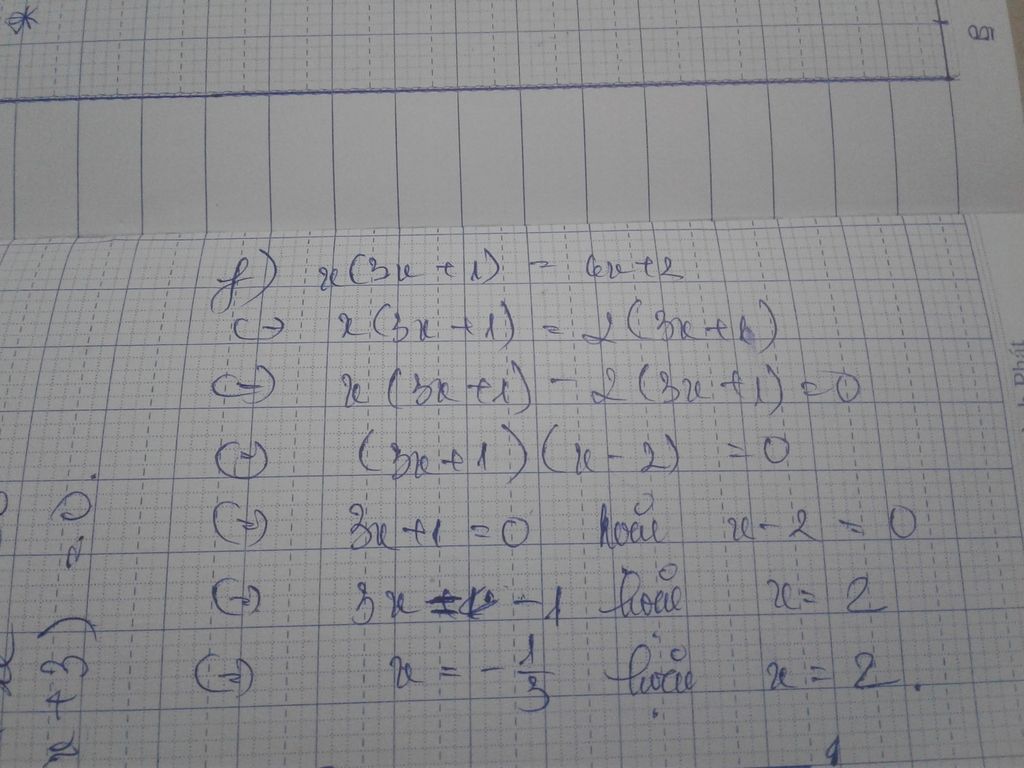 f) x(3x + 1) = 6x+2
<-> x(3x + 1) = 2(3x+1)
<=> x(3x+1) - 2(3x+1) = 0
<=> (3x+1)(x-2) = 0
<=> 3x+1 = 0 hoặc x-2 = 0
<=> 3x = -1 hoặc x= 2
<=> x = - 1/3 hoặc x = 2.
x + 3) = 0.